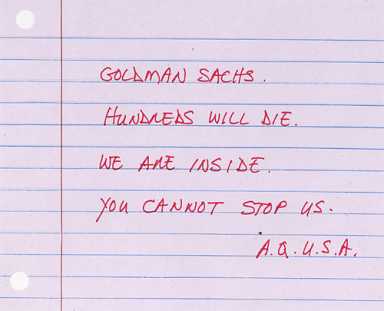 GOLDMAN SACHS.
HUNDREDS WILL DIE.
WE ARE INSIDE.
YOU CANNOT STOP US.
A.Q.U.S.A.